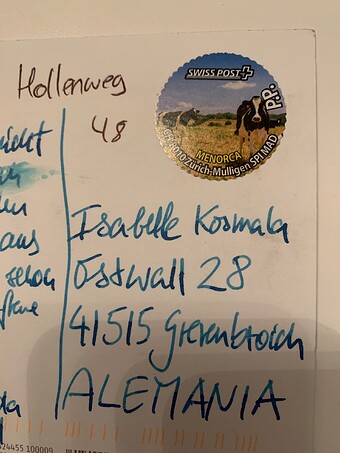 Hollenweg
48
SWISS POST
P.P.
MENORCA
CH-8010 Zürich-Mülligen SPI MAD
Isabelle Kosmala
Ostwall 28
41515 Grevenbroich
ALEMANIA
aus
schon
24455 100009